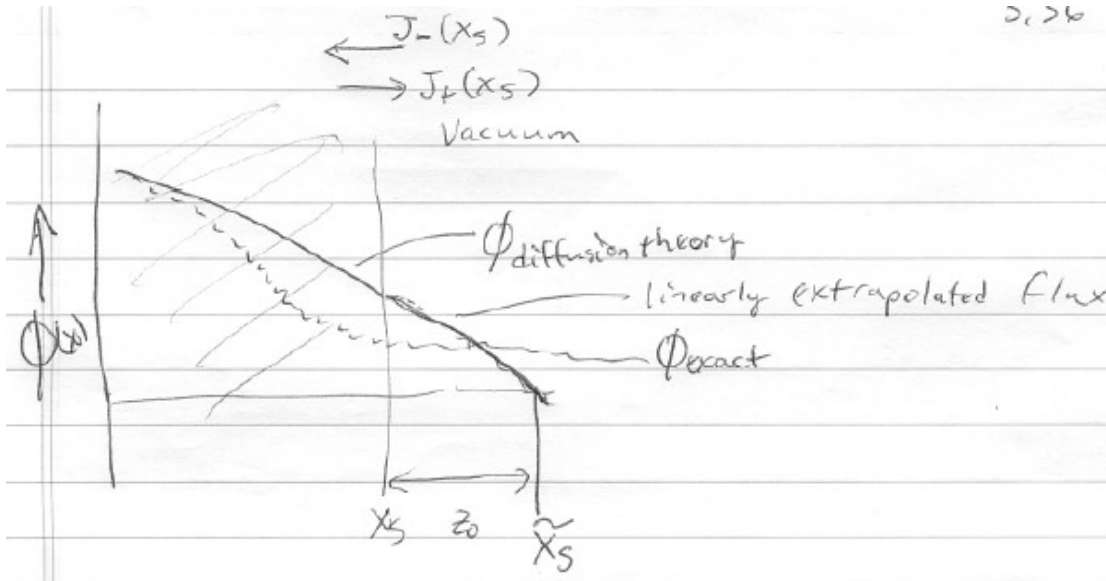 J₋(xₛ)
J₊(xₛ)
Vacuum
ϕ diffusion theory
linearly extrapolated flux
ϕ(x)
ϕ exact
xₛ z₀ x̃ₛ